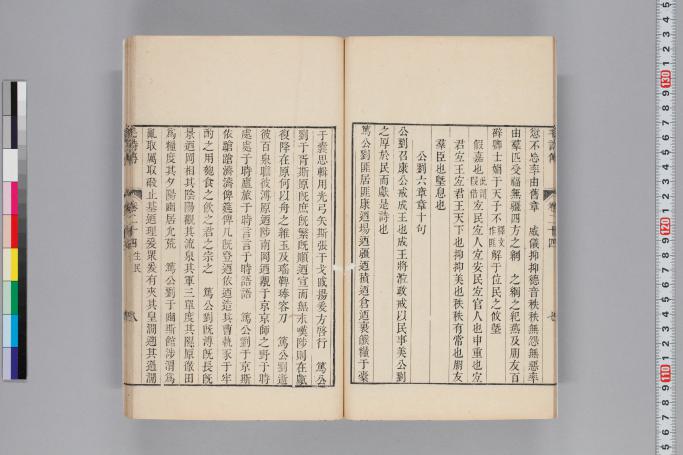 愆不忘率由舊章　威儀抑抑德音秩秩無怨無惡率
由羣匹受福無疆四方之綱　之綱之紀燕及朋友百
辟卿士媚于天子不解于位民之攸墍
假嘉也宜民宜人宜安民宜官人也申重也宜
君宜王宜君王天下也抑抑美也秩秩有常也朋友
羣臣也墍息也
公劉六章章十句
公劉召康公戒成王也成王將涖政戒以民事美公劉
之厚於民而獻是詩也
篤公劉匪居匪康迺場迺疆迺積迺倉迺裹餱糧于橐
于囊思輯用光弓矢斯張干戈戚揚爰方啓行　篤公
劉于胥斯原既庶既繁既順迺宣而無永嘆陟則在巘
復降在原何以舟之維玉及瑤鞞琫容刀　篤公劉逝
彼百泉瞻彼溥原迺陟南岡迺覯于京京師之野于時
處處于時廬旅于時言言于時語語　篤公劉于京斯
依蹌蹌濟濟俾筵俾几既登迺依迺造其曹執豕于牢
酌之用匏食之飲之君之宗之　篤公劉既溥既長既
景迺岡相其陰陽觀其流泉其軍三單度其隰原徹田
爲糧度其夕陽豳居允荒　篤公劉于豳斯館涉渭爲
亂取厲取鍛止基迺理爰衆爰有夾其皇澗遡其過澗
卷二十四 生民
八